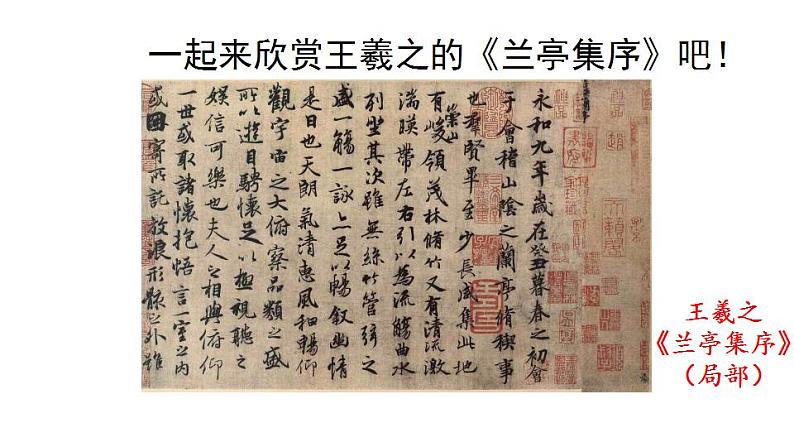 一起来欣赏王羲之的《兰亭集序》吧！
永和九年歲在癸丑暮春之初會
于會稽山陰之蘭亭脩稧事
也羣賢畢至少長咸集此地
有崇山峻領茂林脩竹又有清流激
湍暎帶左右引以為流觴曲水
列坐其次雖無絲竹管弦之
盛一觴一詠亦足以暢叙幽情
是日也天朗氣清惠風和暢仰
觀宇宙之大俯察品類之盛
所以遊目騁懷足以極視聽之
娛信可樂也夫人之相與俯仰
一世或取諸懷抱悟言一室之內
或因寄所託放浪形骸之外雖
王羲之
《兰亭集序》
（局部）